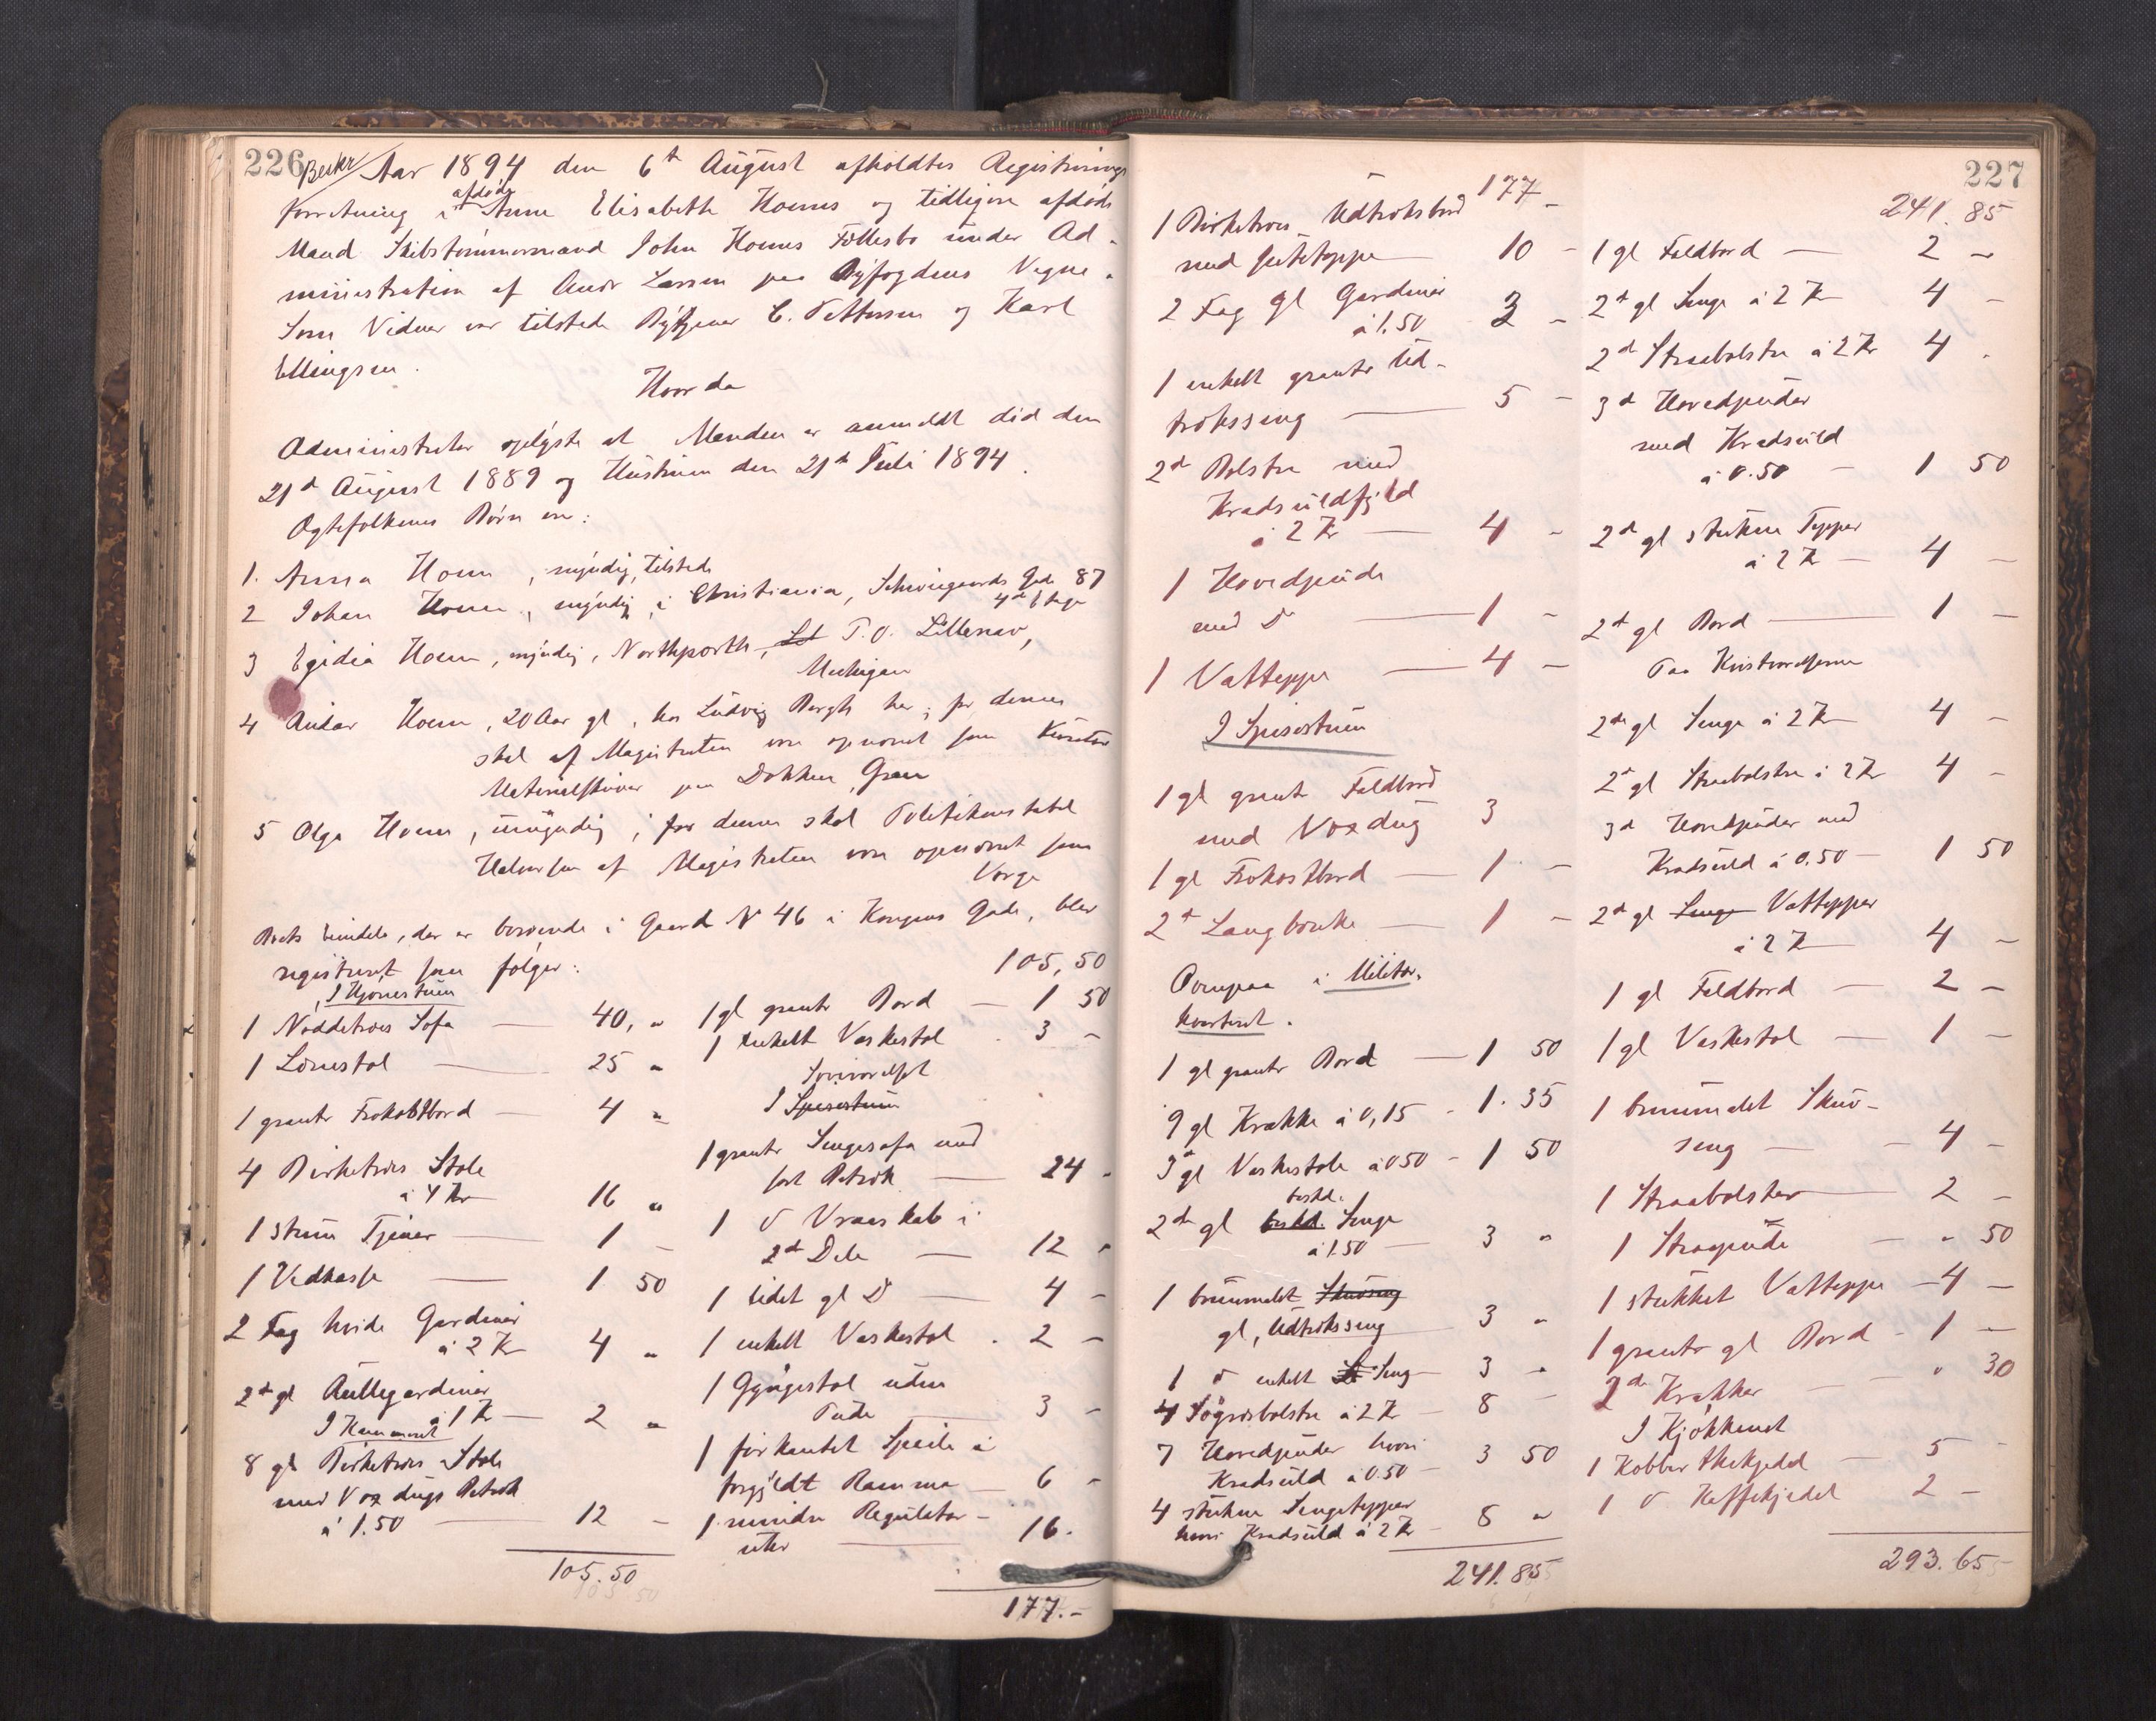 226
Aar 1894 den 6te August afholdtes Registrerings
forretning i afdøde Anne Elisabeth Hoems og tidligere afdøde
Mand Skibstømmermand John Hoems Fællesbo under Ad-
ministration af Andr Larsen paa Byfogdens Vegne.
Som Vidner var tilstede C. Pettersen og Karl
Ellingsen.
Hvorda
Administrator oplyste at Manden er anmeldt død den
21d August 1889 og Hustruen den 21de Juli 1894.
Ægtefolkenes Børn ere:
1. Anna Hoem, myndig, tilstede
2 Johan Hoem, myndig, i Christiania, Schweigaards Gade 87
4de Etage
3 Egidia Hoem, myndig, Northporth, P.O.
Michigan
4 Hoem, 20 Aar gl, hos Ludvig Bergh her; for denne
skal af Magistraten være opnævnt som Kurator
paa Dokken, Gran
5 Olga Hoem, umyndig; for denne skal Politikonstabel
Halvorsen af Magistraten være opnævnt som
Værge
Boets Eiendele, der er beroende i Gaard N 46 i Kongens Gade, blev
registreret som følger:
I Hjørnestuen
1 Nøddetræes Sofa — 40, "
1 Lænestol — 25 "
1 grantr Frokostbord — 4 "
4 Birketræs Stole
à 4 Kr 16 "
1 stum Tjener — 1 –
1 Vedkasse — 1 50
2 Fag hvide Gardiner
à 2 Kr 4 "
2d gl Rullegardiner
à 1 Kr — 2 "
I Kammeret
8 gl Birketræs Stole
med Voxdugs Betræk
à 1.50 — 12 –
105.50
105,50
1 gl grantr Bord — 1 50
1 enkelt Vaskestol . 3 –
Soveværelset
I Spisestuen
1 grantr Sengesofa med
sort Betræk — 24 "
1 d Vraaskab i
2d Dele — 12 "
1 lidet gl D — 4 –
1 enkelt Vaskestol . 2 –
1 Gyngestol uden
Pude — 3 –
1 firkantet Speile i
forgyldt Ramme — 6 –
1 mindre Regulator –
uhr — 16.
177.–
227
177 –
1 Birketræs Udtræksbord
med Jutetæppe — 10 –
2 Fag gl Gardiner
à 1.50 3 –
1 enkelt grantr Ud-
trækssseng — 5 –
2d Bolstre med
Kradsuldfyld
à 2 Kr — 4 –
1 Hovedpude
med D — 1 –
1 Vattæppe — 4 –
I Spisestuen
1 gl grantr Foldbord
med Voxdug 3
1 gl Frokostbord — 1 –
2d Langbænke — 1 –
Ovenpaa i Militær-
kvarteret.
1 gl grantr Bord — 1 50
9 gl Krakke à 0,15 – 1.35
3d gl Vaskestole à 0 50 – 1 50
2de gl beskd. Senge
à 1.50 — 3 "
1 brunmalet Skuvseng
gl, Udtrækssseng 3 "
1 d enkelt Seng — 3 "
4 Søgræsbolstre à 2 Kr — 8 –
7 Hovedpuder hvori
Kradsuld à 0.50 — 3 50
4 stukne Sengetepper
hvori Kradsuld à 2 Kr — 8 "
241.85
241.85
1 gl Foldbord — 2 –
2d gl Senge à 2 Kr 4 –
2d Straabolstre à 2 Kr 4 .
3d Hovedpuder
med Kradsuld
à 0.50 — 1 50
2d gl stukne Tepper
à 2 Kr — 4 –
2d gl Bord — 1 –
Paa Kvistværelserne
2de gl Senge à 2 Kr 4 –
2d gl Straabolstre à 2 Kr 4 –
3d Hovedpuder med
Kradsuld à 0.50 — 1 50
2d gl Senge Vattepper
à 2 Kr 4 –
1 gl Foldbord — 2 –
1 gl Vaskestol — 1 –
1 brunmalet Skuv-
seng — 4 –
1 Straabolster — 2 –
1 Straapude — " 50
1 stukket Vatteppe — 4 –
1 grantr gl Bord – 1 –
2de Krakker — " 30
I Kjøkkenet
1 Kobber Thekjedel — 5 –
1 d Kaffekjedel 2 –
293.65